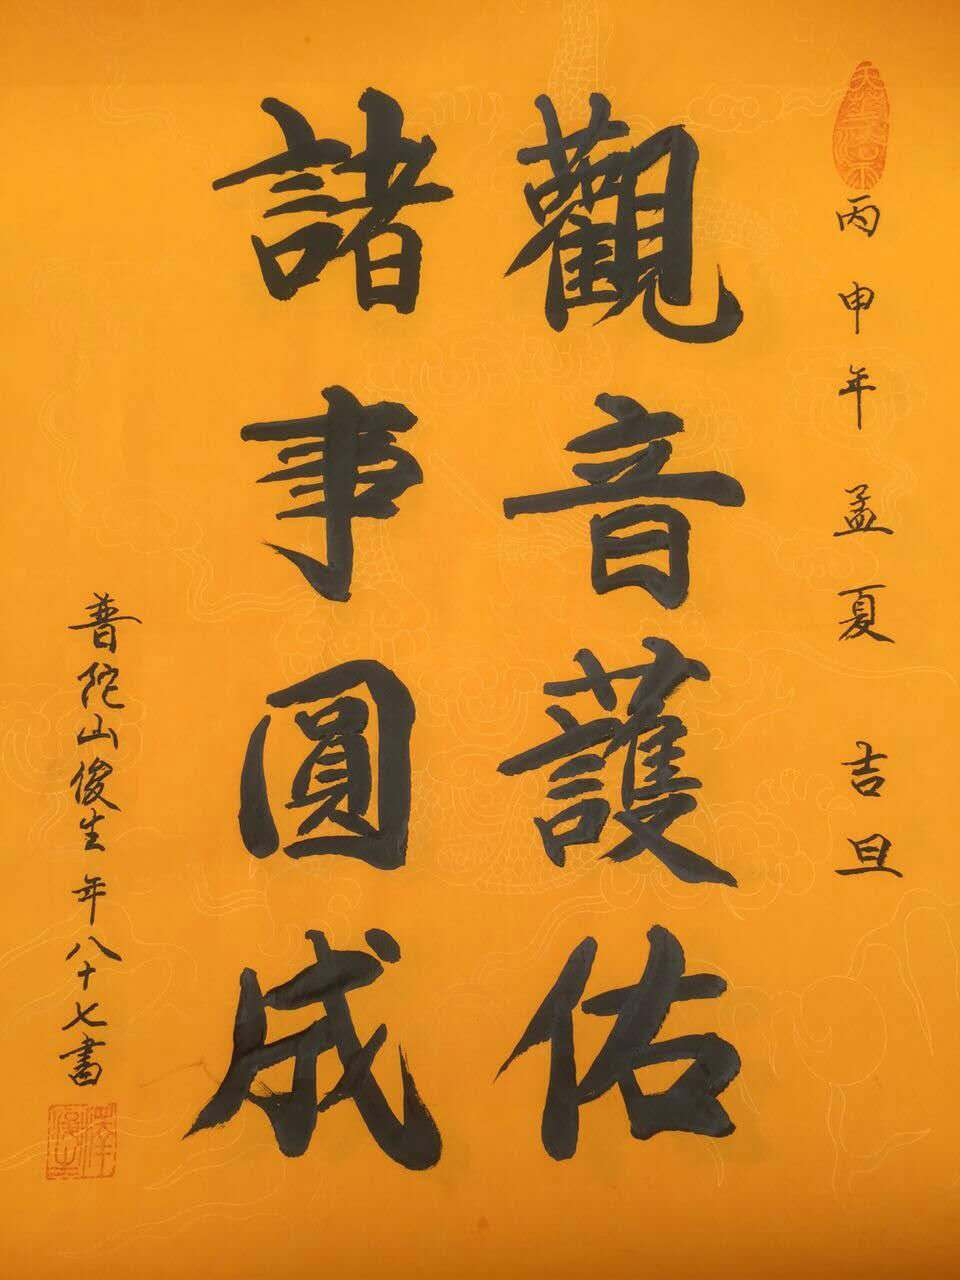 丙申年孟夏吉旦
觀音護佑
諸事圓成
普陀山俊生年八十七書